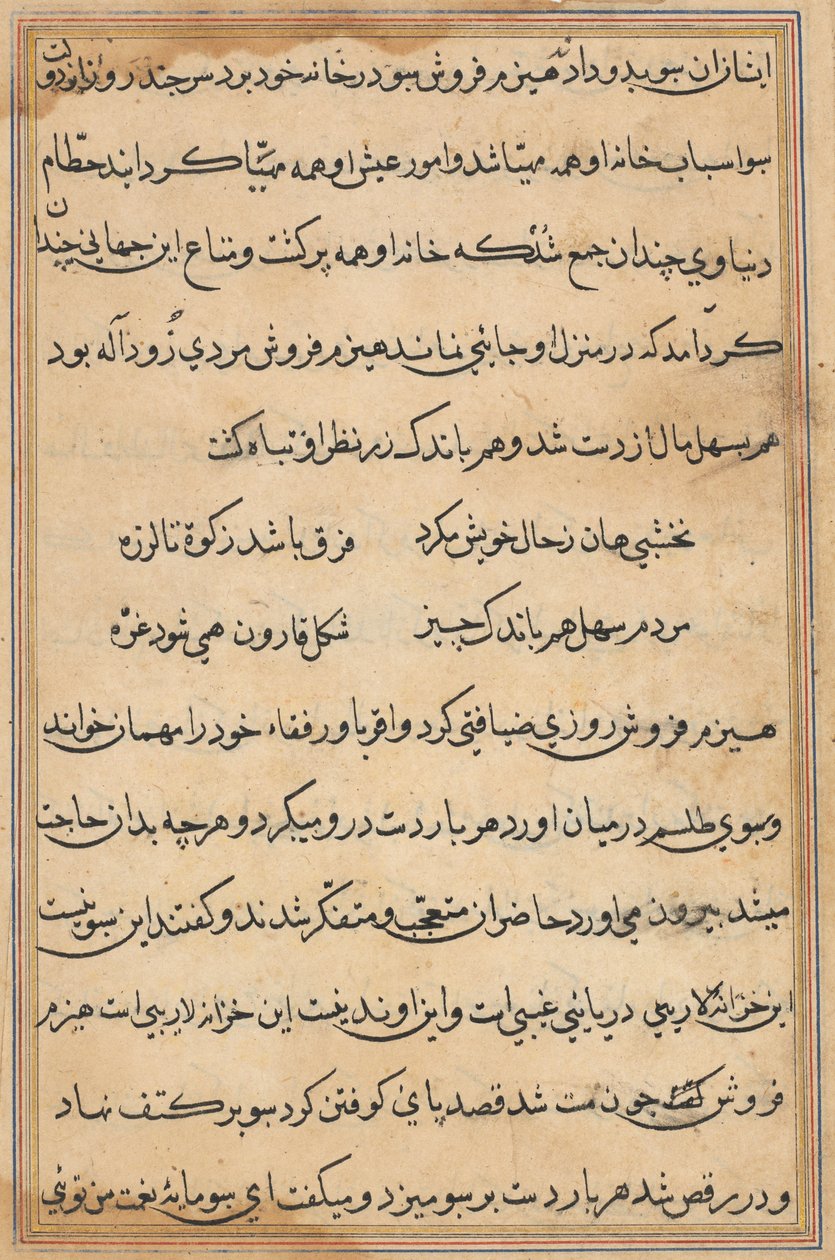 ایشان ان سبو بدو دادند هیزم فروش سبو در خانه خود برد سر چند روز از دولت
سبو اسباب خانه او همه مهیّا شد و امور عیش او همه مهیّیا کردایند حطّام
دنیاوي چندان جمع شُدْ که خانه او همه پر کشت و متاع این جهانی چندان
کرد آمد که در منزل او جائی نماند هیزم فروش مردي زُود آله بود
هم بسهل مال از دست شد و هم باندک زر نظر او تباه کشت
نخشبي هان ز حال خویش مکرد فرق باشد ز کوة تا لرزه
مردم سهل هم باندک چیز شکل قارون همي شود غرّه
هیزم فروش روزي ضیافتي کرد و اقربا و رفقاء خود را مهمان خواند
و سبوي طلسم در میان اورد هر بار دست درو میکرد و هرچه بدان حاجت
میشد بیرون مي اورد حاضران متعجّب و متفکّر شدند و کفتند این سبو نیست
این خزانهٔ لاریبي دریائي غیبي است و این اوند نیست این خزانه لاریبي است هیزم
فروش کفت جون مست شد قصد پاي کوفتن کرد سبو بر کتف نهاد
و در رقص شد هر بار دست بر سبو میزد و میکفت اي سبو مایهٔ نعمت من توئي